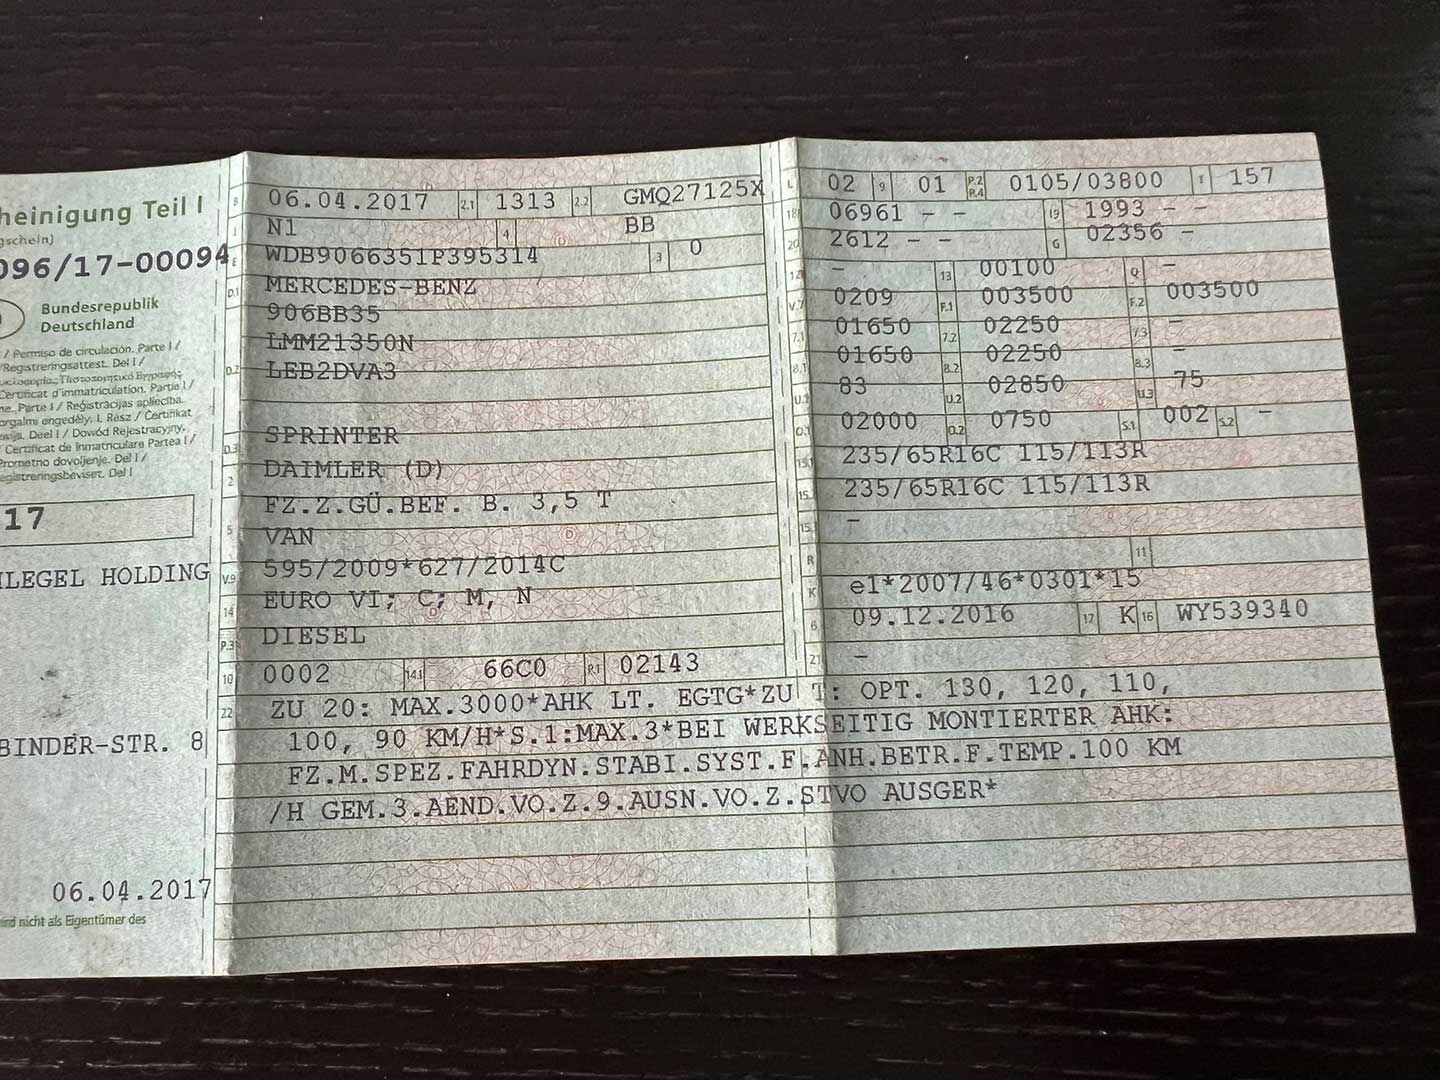 heinigung Teil I
gschein)
096/17-00094
Bundesrepublik
Deutschland
/ Permiso de circulación. Parte I /
Registreringsattest. Del I /
Certificat d'immatriculation. Partie I /
ne. Parte I / Reģistrācijas apliecība.
orgalmi engedély. I. Rész / Ċertifikat
wijs. Deel I / Dowód Rejestracyjny.
Certificat de înmatriculare Partea I /
Prometno dovoljenje. Del I /
egistreringsbeviset. Del I
17
LEGEL HOLDING
BINDER-STR. 8
06.04.2017
nicht als Eigentümer des
B 06.04.2017 2.1 1313 2.2 GMQ27125X
J N1 4 BB
E WDB9066351P395314 3 0
D.1 MERCEDES-BENZ
906BB35
LMM21350N
D.2 LEB2DVA3
D.3 SPRINTER
2 DAIMLER (D)
FZ.Z.GÜ.BEF. B. 3,5 T
5 VAN
V.9 595/2009*627/2014C
14 EURO VI; C; M, N
P.3 DIESEL
10 0002 14.1 66C0 P.1 02143
L 02 9 01 P.2 P.4 0105/03800 T 157
18 06961 - - 19 1993 -
20 2612 - - G 02356 -
12 - 13 00100 Q -
V.7 0209 F.1 003500 F.2 003500
7.1 01650 7.2 02250 7.3 -
8.1 01650 8.2 02250 8.3 -
U.1 83 U.2 02850 U.3 75
O.1 02000 O.2 0750 S.1 002 S.2 -
15.1 235/65R16C 115/113R
15. 235/65R16C 115/113R
15. -
R 11
K e1*2007/46*0301*15
6 09.12.2016 17 K 16 WY539340
21 -
22 ZU 20: MAX.3000*AHK LT. EGTG*ZU T: OPT. 130, 120, 110,
100, 90 KM/H*S.1:MAX.3*BEI WERKSEITIG MONTIERTER AHK:
FZ.M.SPEZ.FAHRDYN.STABI.SYST.F.ANH.BETR.F.TEMP.100 KM
/H GEM.3.AEND.VO.Z.9.AUSN.VO.Z.STVO AUSGER*